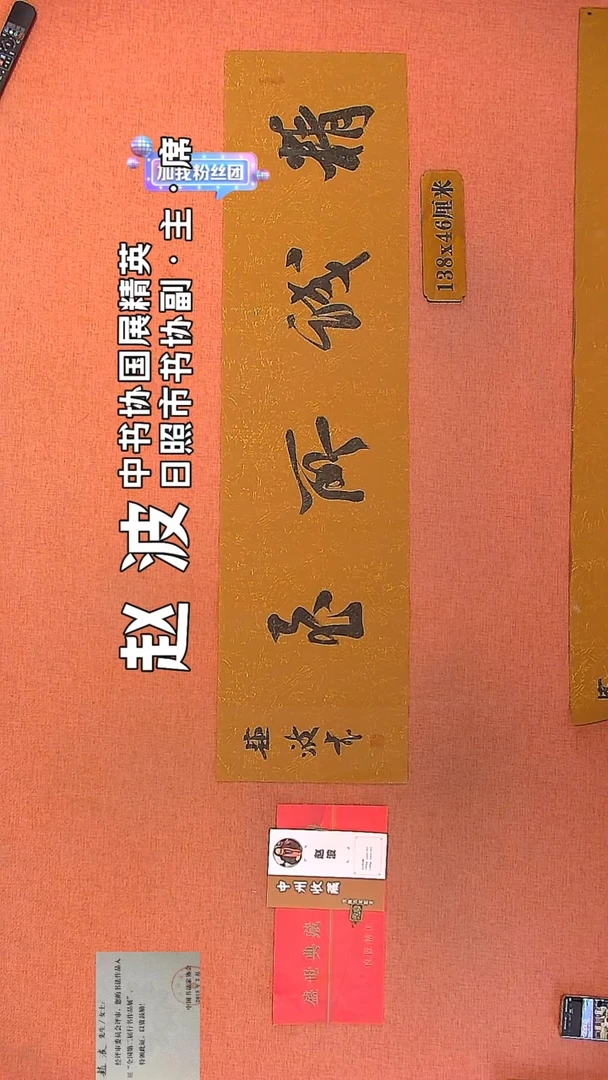 加我粉丝团
赵波
中书协国展精英
日照市书协副·主·席
精诚所至
赵波书
138x46厘米
赵波
中州收藏
盛世典藏
赵波 先生/女士:
经评审委员会评审,您的书法作品入
展“全国第二届行书作品展”,
特颁此证,以资鼓励!
中国书法家协会